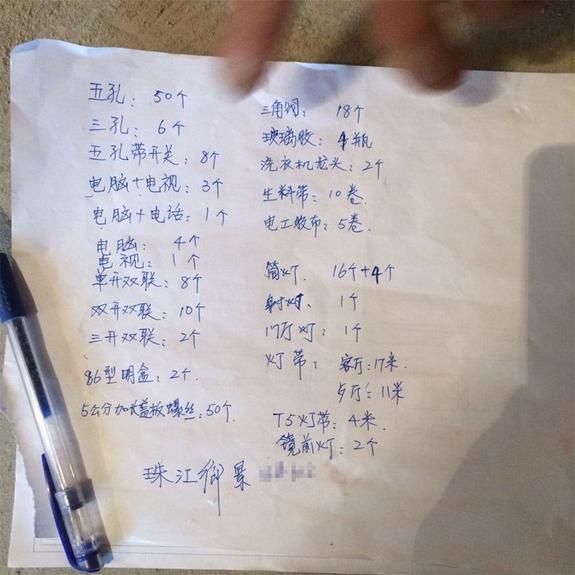 五孔：50个
三孔：6个
五孔带开关：8个
电脑+电视：3个
电脑+电话：1个
电脑：4个
电视：1个
单开双联：8个
双开双联：10个
三开双联：2个
86型明盒：2个.
5公分加长盖板螺丝：50个.
三角阀：18个
玻璃胶：4瓶
洗衣机龙头：2个
生料带：10卷
电工胶布：5卷.
筒灯．16个+4个
射灯．1个
门厅灯：1个
灯带：客厅：17米
歺厅：11米
T5灯带：4米
镜前灯：2个
珠江御景